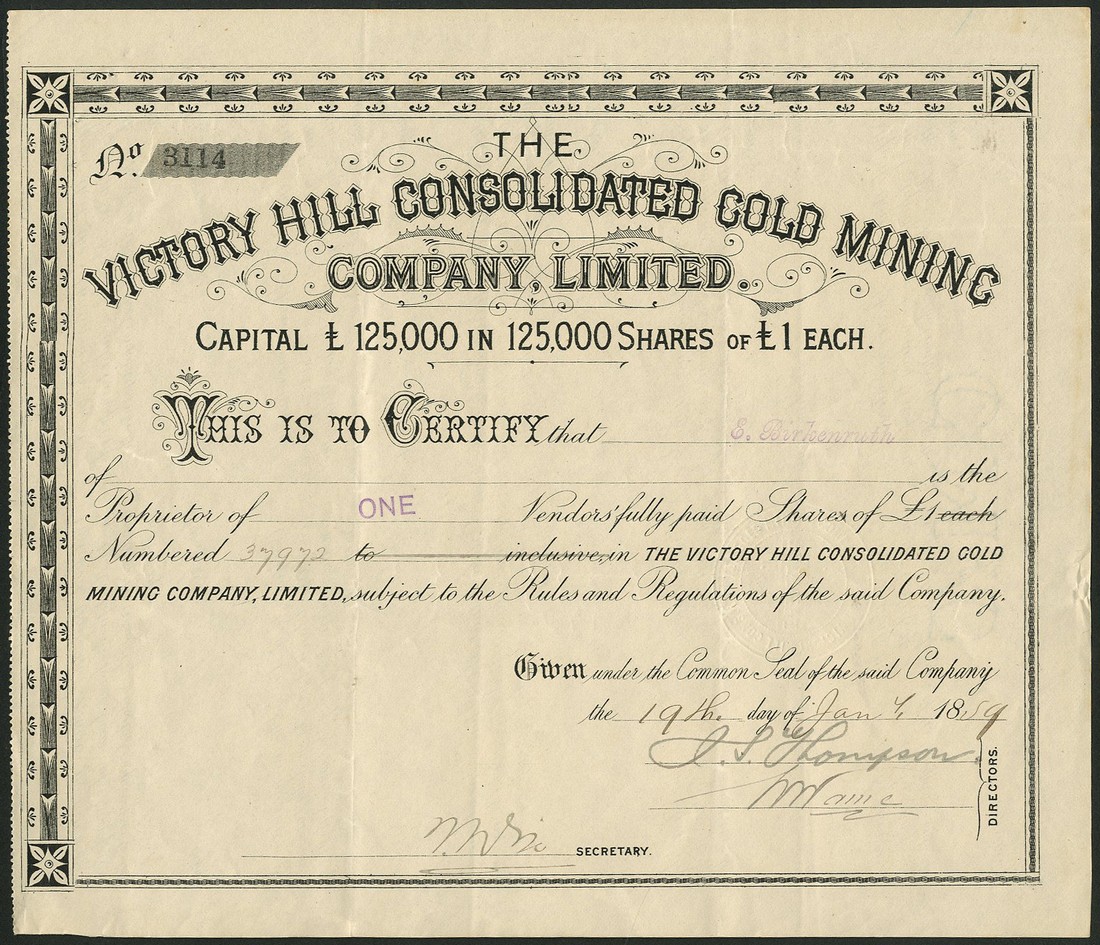 No. 3114
THE
VICTORY HILL CONSOLIDATED GOLD MINING
COMPANY, LIMITED.
CAPITAL £ 125,000 IN 125,000 SHARES OF £1 EACH.
THIS IS TO CERTIFY that E. Birkenruth
of is the
Proprietor of ONE Vendors' fully paid Shares of £1 each
Numbered 37972 to inclusive, in THE VICTORY HILL CONSOLIDATED GOLD
MINING COMPANY, LIMITED, subject to the Rules and Regulations of the said Company.
Given under the Common Seal of the said Company
the 19th day of Jany 1889
J. S. Thompson
DIRECTORS.
SECRETARY.